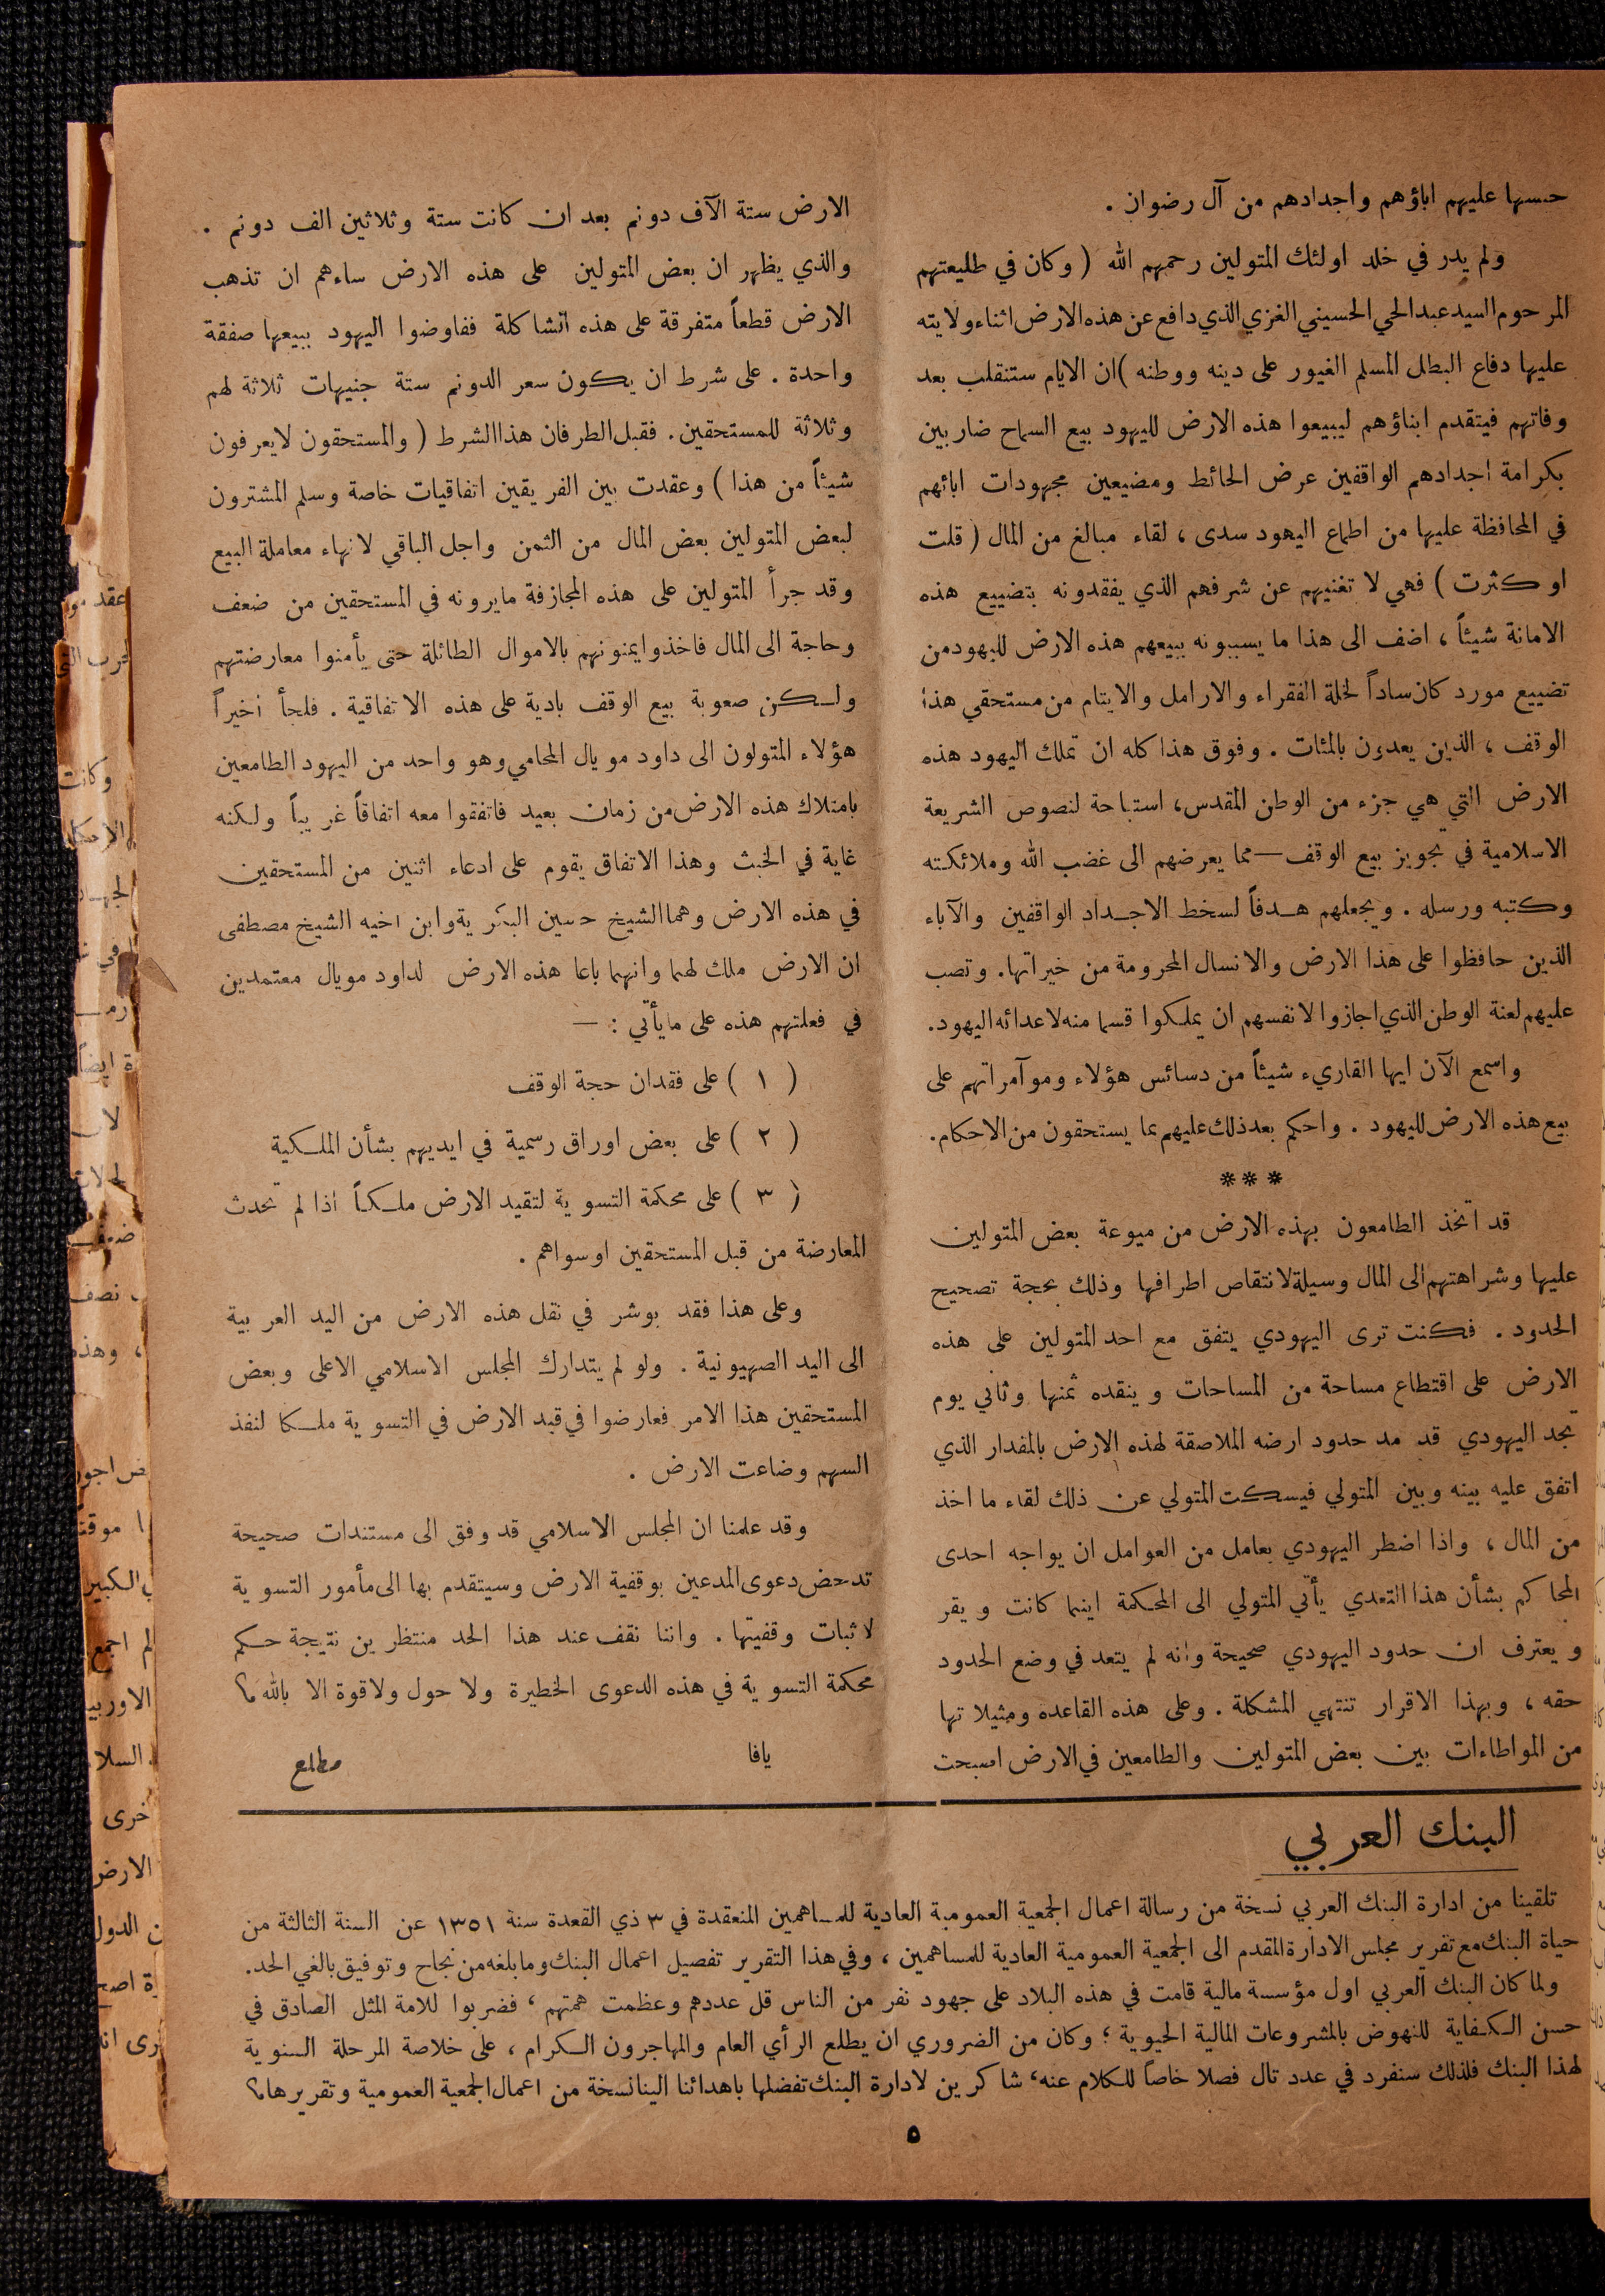 حبسها عليهم اباؤهم واجدادهم من آل رضوان .
ولم يدر في خلد اولئك المتولين رحمهم الله ( وكان في طليعتهم
المرحوم السيد عبد الحي الحسيني الغزي الذي دافع عن هذه الارض اثناء ولايته
عليها دفاع البطل المسلم الغيور على دينه ووطنه ) ان الايام ستنقلب بعد
وفاتهم فيتقدم ابناؤهم ليبيعوا هذه الارض لليهود بيع السماح ضاربين
بكرامة اجدادهم الواقفين عرض الحائط ومضيعين مجهودات ابائهم
في المحافظة عليها من اطماع اليهود سدى ، لقاء مبالغ من المال ( قلت
او كثرت ) فهي لا تغنيهم عن شرفهم الذي يفقدونه بتضييع هذه
الامانة شيئاً ، اضف الى هذا ما يسببونه ببيعهم هذه الارض لليهود من
تضييع مورد كان ساداً لخلة الفقراء والارامل والايتام من مستحقي هذا
الوقف ، الذين يعدون بالمئات . وفوق هذا كله ان تملك اليهود هذه
الارض التي هي جزء من الوطن المقدس، استباحة لنصوص الشريعة
الاسلامية في تجويز بيع الوقف — مما يعرضهم الى غضب الله وملائكته
وكتبه ورسله . ويجعلهم هدفاً لسخط الاجداد الواقفين والآباء
الذين حافظوا على هذا الارض والانسال المحرومة من خيراتها. وتصب
عليهم لعنة الوطن الذي اجازوا لانفسهم ان يملكوا قسما منه لاعدائه اليهود.
واسمع الآن ايها القاريء شيئاً من دسائس هؤلاء وموآمراتهم على
بيع هذه الارض لليهود . واحكم بعد ذلك عليهم بما يستحقون من الاحكام.
***
قد اتخذ الطامعون بهذه الارض من ميوعة بعض المتولين
عليها وشراهتهم الى المال وسيلة لانتقاص اطرافها وذلك بحجة تصحيح
الحدود . فكنت ترى اليهودي يتفق مع احد المتولين على هذه
الارض على اقتطاع مساحة من المساحات وينقده ثمنها وثاني يوم
تجد اليهودي قد مد حدود ارضه الملاصقة لهذه الارض بالمقدار الذي
اتفق عليه بينه وبين المتولي فيسكت المتولي عن ذلك لقاء ما اخذ
من المال ، واذا اضطر اليهودي بعامل من العوامل ان يواجه احدى
المحاكم بشأن هذا التعدي يأتي المتولي الى المحكمة اينما كانت ويقر
ويعترف ان حدود اليهودي صحيحة وانه لم يتعد في وضع الحدود
حقه ، وبهذا الاقرار تنتهي المشكلة . وعلى هذه القاعدة ومثيلاتها
من المواطاءات بين بعض المتولين والطامعين في الارض اصبحت
الارض ستة الآف دونم بعد ان كانت ستة وثلاثين الف دونم .
والذي يظهر ان بعض المتولين على هذه الارض ساءهم ان تذهب
الارض قطعاً متفرقة على هذه الشاكلة ففاوضوا اليهود ببيعها صفقة
واحدة . على شرط ان يكون سعر الدونم ستة جنيهات ثلاثة لهم
وثلاثة للمستحقين . فقبل الطرفان هذا الشرط ( والمستحقون لايعرفون
شيئاً من هذا ) وعقدت بين الفريقين اتفاقيات خاصة وسلم المشترون
لبعض المتولين بعض المال من الثمن واجل الباقي لانهاء معاملة البيع
وقد جرأ المتولين على هذه المجازفة مايرونه في المستحقين من ضعف
وحاجة الى المال فاخذوا يمنونهم بالاموال الطائلة حتى يأمنوا معارضتهم
ولكن صعوبة بيع الوقف بادية على هذه الاتفاقية . فلجأ اخيراً
هؤلاء المتولون الى داود مويال المحامي وهو واحد من اليهود الطامعين
بامتلاك هذه الارض من زمان بعيد فاتفقوا معه اتفاقاً غريباً ولكنه
غاية في الخبث وهذا الاتفاق يقوم على ادعاء اثنين من المستحقين
في هذه الارض وهما الشيخ حسين البكرية وابن اخيه الشيخ مصطفى
ان الارض ملك لهما وانهما باعا هذه الارض لداود مويال معتمدين
في فعلتهم هذه على مايأتي : —
( ١ ) على فقدان حجة الوقف
( ٢ ) على بعض اوراق رسمية في ايديهم بشأن الملكية
( ٣ ) على محكمة التسوية لتقيد الارض ملكاً اذا لم تحدث
المعارضة من قبل المستحقين اوسواهم .
وعلى هذا فقد بوشر في نقل هذه الارض من اليد العربية
الى اليد الصهيونية . ولو لم يتدارك المجلس الاسلامي الاعلى وبعض
المستحقين هذا الامر فعارضوا في قيد الارض في التسوية ملكا لنفذ
السهم وضاعت الارض .
وقد علمنا ان المجلس الاسلامي قد وفق الى مستندات صحيحة
تدحض دعوى المدعين بوقفية الارض وسيتقدم بها الى مأمور التسوية
لاثبات وقفيتها . واننا نقف عند هذا الحد منتظرين نتيجة حكم
محكمة التسوية في هذه الدعوى الخطيرة ولا حول ولاقوة الا بالله ؟
يافا مطلع
البنك العربي
تلقينا من ادارة البنك العربي نسخة من رسالة اعمال الجمعية العمومية العادية للمساهمين المنعقدة في ٣ ذي القعدة سنة ١٣٥١ عن السنة الثالثة من
حياة البنك مع تقرير مجلس الادارة المقدم الى الجمعية العمومية العادية للمساهمين ، وفي هذا التقرير تفصيل اعمال البنك ومابلغه من نجاح وتوفيق بالغي الحد.
ولما كان البنك العربي اول مؤسسة مالية قامت في هذه البلاد على جهود نفر من الناس قل عددهم وعظمت همتهم ، فضربوا للامة المثل الصادق في
حسن الكفاية للنهوض بالمشروعات المالية الحيوية ؛ وكان من الضروري ان يطلع الرأي العام والمهاجرون الكرام ، على خلاصة المرحلة السنوية
لهذا البنك فلذلك سنفرد في عدد تال فصلا خاصاً للكلام عنه، شاكرين لادارة البنك تفضلها باهدائنا الينا نسخة من اعمال الجمعية العمومية وتقريرها ؟
٥